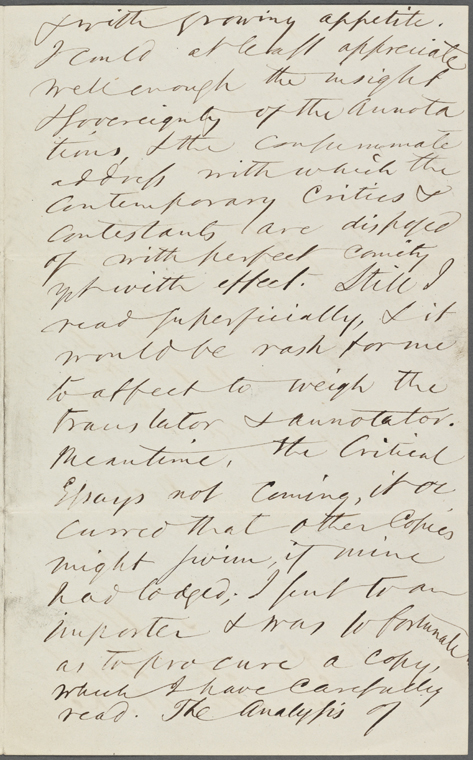 & with growing appetite.
I could at least appreciate
well enough the insight
& sovereignty of the Annota
tions, & the consummate
address with which the
contemporary Critics &
contestants are disposed
of with perfect comity
yet with effect. Still I
read superficially, & it
would be rash for me
to affect to weigh the
translator & annotator.
Meantime, the Critical
Essays not coming, it oc
curred that other Copies
might swim, if mine
had lodged; I sent to an
importer & was so fortunate
as to procure a copy,
which I have carefully
read. The Analysis of